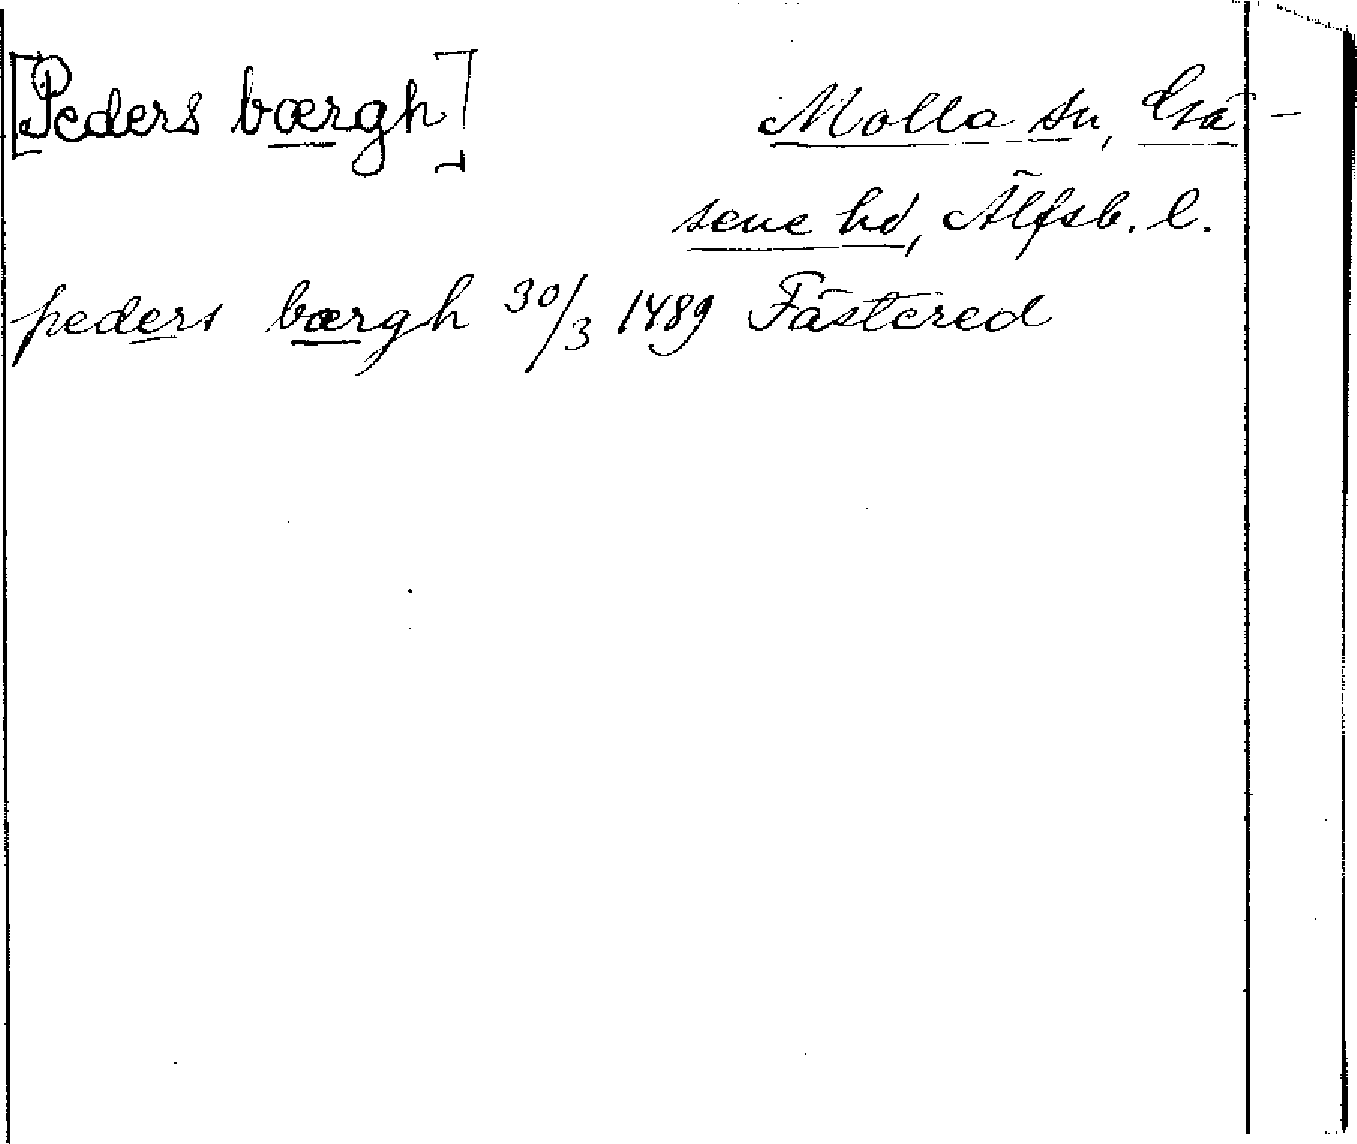 [Peders bærgh]
Molla sn, Gä-
sene hd, Älfsb. l.
peders bærgh 30/3 1489 Fästered